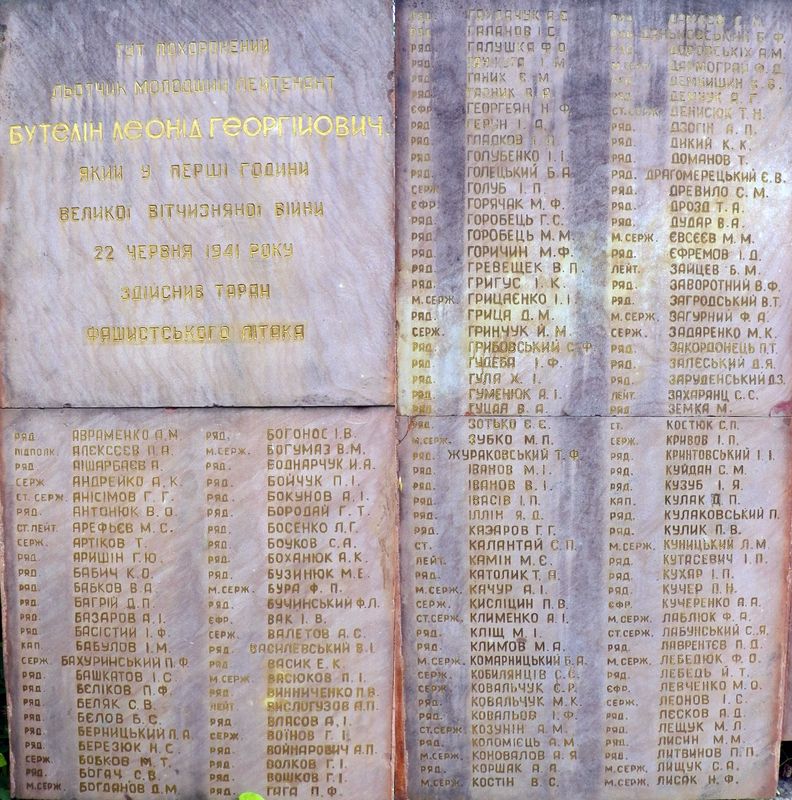 ТУТ ПОХОРОНЕНИЙ
ЛЬОТЧИК МОЛОДШИЙ ЛЕЙТЕНАНТ
БУТЕЛІН ЛЕОНІД ГЕОРГІЙОВИЧ,
ЯКИЙ У ПЕРШІ ГОДИНИ
ВЕЛИКОЇ ВІТЧИЗНЯНОЇ ВІЙНИ
22 ЧЕРВНЯ 1941 РОКУ
ЗДІЙСНИВ ТАРАН
ФАШИСТСЬКОГО ЛІТАКА
РЯД. АВРАМЕНКО А.М.
ПІДПОЛК. АЛЄКСЄЄВ П.А.
РЯД. АІШАРБАЄВ А.
СЕРЖ АНДРЕЙКО А.К.
СТ. СЕРЖ. АНІСІМОВ Г.Г.
РЯД. АНТОНЮК В.О.
СТ.ЛЕЙТ. АРЕФЬЄВ М.С.
СЕРЖ. АРТІКОВ Т.
РЯД. АРИШІН Г.Ю.
РЯД. БАБИЧ К.О.
РЯД. БАБКОВ В.А.
РЯД. БАГРІЙ Д.П.
РЯД. БАЗАРОВ А.І.
РЯД. БАСІСТИЙ І.Ф.
КАП. БАБУЛОВ І.М.
СЕРЖ. БАХУРИНСЬКИЙ П.Ф.
РЯД. БАШКАТОВ І.С.
РЯД. БЄЛІКОВ П.Ф.
РЯД. БЕЛЯК С.В.
РЯД. БЄЛОВ Б.С.
РЯД. БЕРНИЦЬКИЙ П.А.
РЯД. БЕРЕЗЮК Н.С.
СЕРЖ. БОБКОВ М.Т.
РЯД. БОГАЧ С.В.
М.СЕРЖ. БОГДАНОВ Д.М.
РЯД. БОГОНОС І.В.
М.СЕРЖ. БОГУМАЗ В.М.
РЯД. БОДНАРЧУК И.А.
РЯД. БОЙЧУК П.І.
РЯД. БОКУНОВ А.І.
РЯД. БОРОДАЙ Г.Т.
РЯД. БОСЕНКО Л.Г.
РЯД. БОУКОВ С.А.
РЯД. БОХАНЮК А.К.
РЯД. БУЗИНЮК М.Е.
М.СЕРЖ. БУРА Ф.П.
РЯД. БУЧИНСЬКИЙ Ф.Л.
ЄФР. ВАК І.В.
СЕРЖ. ВАЛЕТОВ А.С.
РЯД. ВАСИЛЕВСЬКИЙ В.І.
РЯД. ВАСИК Е.К.
М.СЕРЖ. ВАСЮКОВ П.І.
РЯД. ВИННИЧЕНКО П.В.
ЛЕЙТ. ВИСЛОГУЗОВ А.П.
РЯД ВЛАСОВ А.І.
СЕРЖ. ВОЇНОВ Г.І.
РЯД. ВОЙНАРОВИЧ А.П.
РЯД. ВОЛКОВ Г.І.
РЯД. ВОШКОВ Г.І.
М.СЕРЖ. ГАГА П.Ф.
РЯД.
РЯД. ГАЛАНОВ І.С.
РЯД. ГАЛУШКА Ф.О.
РЯД.
РЯД. ГАНИХ Є.М.
РЯД.
ЄФР. ГЕОРГЕЯН Н.Ф.
РЯД. ГЕРУН І.А.
РЯД. ГЛАДКОВ
РЯД. ГОЛУБЕНКО І.І.
РЯД. ГОЛЕЦЬКИЙ Б.А.
СЕРЖ ГОЛУБ І.П.
ЄФР. ГОРЯЧАК М.Ф.
РЯД. ГОРОБЕЦЬ Г.С.
РЯД. ГОРОБЕЦЬ М.М.
РЯД. ГОРИЧИН М.Ф.
РЯД. ГРЕВЕЩЕК В.П.
РЯД. ГРИГУС І.К.
М.СЕРЖ. ГРИЦАЄНКО І.І.
РЯД. ГРИЦА Д.М.
СЕРЖ. ГРИНЧУК Й.М.
РЯД. ГРИБОВСЬКИЙ С.Ф.
РЯД. ГУДЕБА І.Ф.
РЯД. ГУЛЯ Х.І.
РЯД. ГУМЕНЮК А.І.
РЯД. ГУЦАЛ В.А.
РЯД.
РЯД. ДАНЬКОВСЬКИЙ Б.Ф.
РЯД. ДОРОВСЬКІХ А.М.
М.СЕРЖ.
РЯД.
РЯД. ДЕМЧУК А.Г.
СТ.СЕРЖ. ДЕНИСЮК Т.Н.
РЯД. ДЗОГІН А.П.
РЯД. ДИКИЙ К.К.
РЯД. ДОМАНОВ Т.
РЯД. ДРАГОМЕРЕЦЬКИЙ Є.В.
РЯД. ДРЕВИЛО С.М.
РЯД. ДРОЗД Т.А.
РЯД. ДУДАР В.А.
М.СЕРЖ. ЄВСЄЄВ М.М.
РЯД. ЄФРЕМОВ І.Д.
ЛЕЙТ. ЗАЙЦЕВ Б.М.
РЯД. ЗАВОРОТНИЙ В.Ф.
РЯД. ЗАГРОДСЬКИЙ В.Т.
М.СЕРЖ. ЗАГУРНИЙ Ф.А.
СЕРЖ. ЗАДАРЕНКО М.К.
РЯД. ЗАКОРДОНЕЦЬ П.Т.
РЯД. ЗАЛЄСЬКИЙ Д.Я.
РЯД. ЗАРУДЕНСЬКИЙ Д.З.
ЛЕЙТ. ЗАХАРЯНЦ С.С.
РЯД. ЗЕМКА М.
РЯД. ЗОТЬКО Є.Є.
М.СЕРЖ. ЗУБКО М.П.
РЯД. ЖУРАКОВСЬКИЙ Т.Ф.
РЯД. ІВАНОВ М.І.
РЯД. ІВАНОВ В.І.
РЯД. ІВАСІВ І.П.
РЯД. ІЛЛІН Я.Д.
РЯД. КАЗАРОВ Г.Г.
СТ. КАЛАНТАЙ Є.П.
ЛЕЙТ. КАМІН М.Є.
РЯД. КАТОЛИК Т.А.
М.СЕРЖ. КАЧУР А.І.
СЕРЖ. КИСЛІЦИН П.В.
СТ.СЕРЖ. КЛИМЕНКО А.І.
РЯД. КЛІЩ М.І.
РЯД. КЛИМОВ М.А.
М.СЕРЖ. КОМАРНИЦЬКИЙ Б.А.
СЕРЖ. КОБИЛЯНЦІВ С.Є.
РЯД. КОВАЛЬЧУК Є.Р.
РЯД. КОВАЛЬЧУК М.К.
РЯД. КОВАЛЬОВ І.Ф.
СТ.СЕРЖ. КОЗУНІН А.М.
РЯД. КОЛОМІЄЦЬ А.М.
М.СЕРЖ. КОНОВАЛОВ А.Я.
РЯД. КОРШАК А.А.
М.СЕРЖ. КОСТІН В.С.
СТ. КОСТЮК С.П.
СЕРЖ. КРИВОВ І.П.
РЯД. КРИНТОВСЬКИЙ І.І.
РЯД. КУЙДАН С.М.
РЯД. КУЗУБ І.Я.
КАП. КУЛАК Д.П.
РЯД. КУЛАКОВСЬКИЙ П.
РЯД. КУЛИК П.В.
М.СЕРЖ. КУНИЦЬКИЙ Л.М.
РЯД. КУТАСЕВИЧ І.П.
РЯД. КУХАР І.П.
РЯД. КУЧЕР П.Н.
ЄФР. КУЧЕРЕНКО А.А.
М.СЕРЖ. ЛАБЛЮК Ф.А.
СТ.СЕРЖ. ЛАБУНСЬКИЙ С.Я.
РЯД. ЛАВРЕНТЄВ П.Д.
М.СЕРЖ. ЛЕБЕДЮК Ф.О.
РЯД. ЛЕБЕДЬ Й.Т.
ЄФР. ЛЕВЧЕНКО М.О.
СЕРЖ. ЛЕОНОВ І.С.
РЯД. ЛЄСКОВ А.Д.
РЯД. ЛЕЩУК М.Л.
РЯД. ЛИСИН М.М.
РЯД. ЛИТВИНОВ П.П.
М.СЕРЖ. ЛИЩУК С.А.
М.СЕРЖ. ЛИСАК Н.Ф.